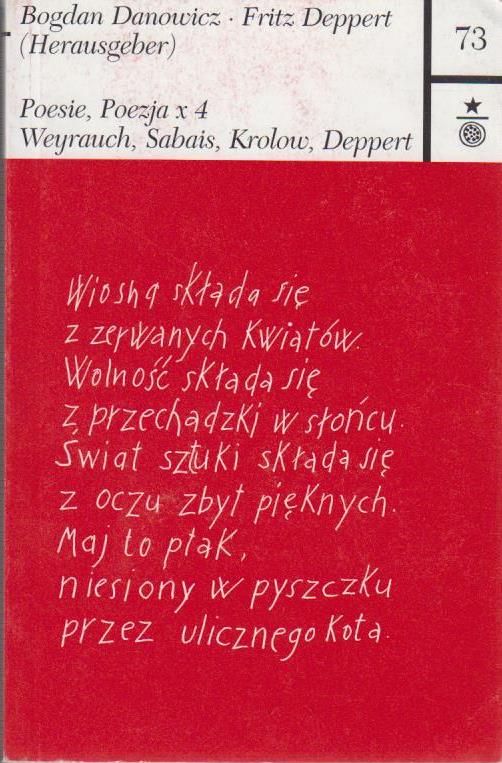 Bogdan Danowicz · Fritz Deppert
(Herausgeber)
73
Poesie, Poezja x 4
Weyrauch, Sabais, Krolow, Deppert
Wiosna składa się
z zerwanych kwiatów.
Wolność składa się
z przechadzki w słońcu.
Świat sztuki składa się
z oczu zbyt pięknych.
Maj to ptak,
niesiony w pyszczku
przez ulicznego kota.